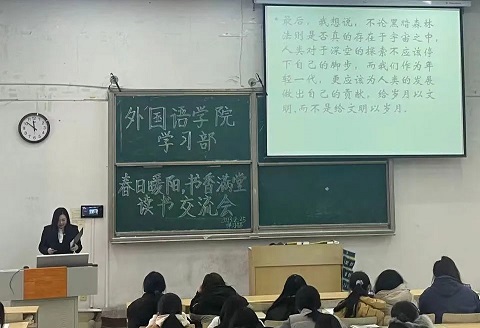 最后，我想说，不论黑暗森林
法则是否真的存在于宇宙之中，
人类对于深空的探索不应该停
下自己的脚步，而我们作为年
轻一代，更应该为人类的发展
做出自己的贡献，给岁月以文
明，而不是给文明以岁月。
外国语学院
学习部
春日暖阳，书香满堂
读书交流会